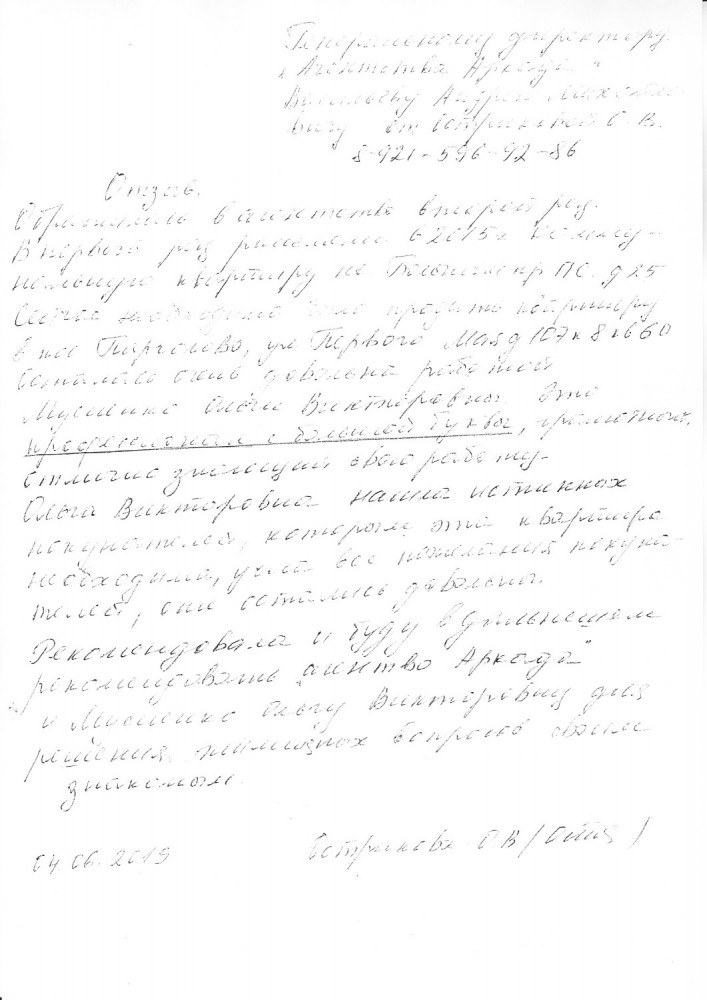 Генеральному директору
"Агентства Аркада"
Васильеву Андрею Михайло
вичу от Остриковой О.В.
8-921-596-92-86
Отзыв.
Обратилась в агентство второй раз.
В первый раз расселяли в 2015г комму-
нальную квартиру на Большом пр ПС. д 25
Сейчас необходимо было продать квартиру
в пос Парголово, ул Первого Мая д 107 к 8 кв 60
Осталась очень довольна работой
Ольги Викторовны. Это
профессионал с большой буквы, грамотный,
отлично знающий свою работу.
Ольга Викторовна нашла истинных
покупателей, которым эта квартира
необходима, учла все пожелания покупа-
телей, они остались довольны.
Рекомендовала и буду в дальнейшем
рекомендовать "агентво Аркада"
и Ольгу Викторовну для
решения жилищных вопросов своим
знакомым.
04 06. 2019 Острикова О.В